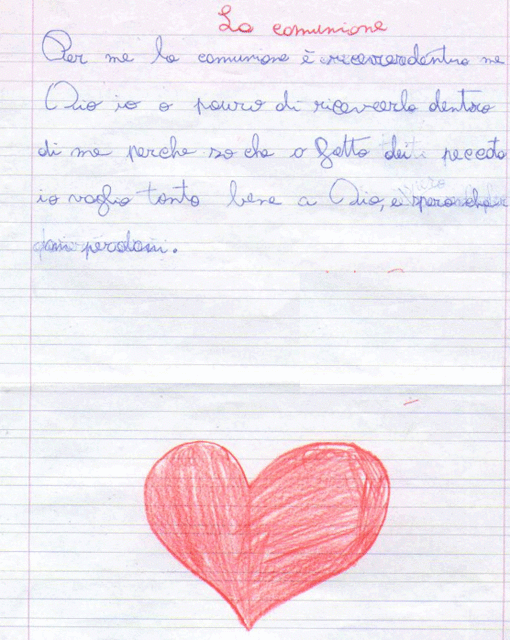 La comunione
Per me la comunione è ricevere dentro me
Dio io o paura di riceverlo dentro
di me perche so che o fatto dei peccato
io voglio tanto bene a Dio, e spero che
mi perdoni.